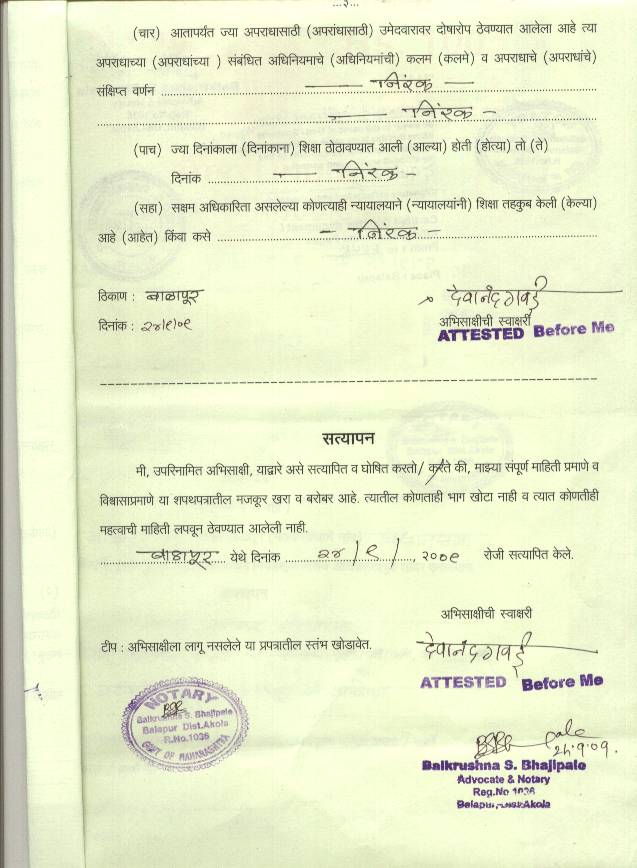 ...३...
(चार) आतापर्यंत ज्या अपराधासाठी (अपरांधासाठी) उमेदवारावर दोषारोप ठेवण्यात आलेला आहे त्या
अपराधाच्या (अपराधांच्या ) संबंधित अधिनियमाचे (अधिनियमांची) कलम (कलमे) व अपराधाचे (अपराधांचे)
संक्षिप्त वर्णन — निंरक —
— निंरक -
(पाच) ज्या दिनांकाला (दिनांकाना) शिक्षा ठोठावण्यात आली (आल्या) होती (होत्या) तो (ते)
दिनांक — निंरक -
(सहा) सक्षम अधिकारिता असलेल्या कोणत्याही न्यायालयाने (न्यायालयांनी) शिक्षा तहकुब केली (केल्या)
आहे (आहेत) किंवा कसे - निंरक -
ठिकाण : बाळापूर
देवानंद गवई
दिनांक : २४/९/०९
अभिसाक्षीची स्वाक्षरी
ATTESTED Before Me
सत्यापन
मी, उपरिनामित अभिसाक्षी, याद्वारे असे सत्यापित व घोषित करतो/ करते की, माझ्या संपूर्ण माहिती प्रमाणे व
विश्वासाप्रमाणे या शपथपत्रातील मजकूर खरा व बरोबर आहे. त्यातील कोणताही भाग खोटा नाही व त्यात कोणतीही
महत्वाची माहिती लपवून ठेवण्यात आलेली नाही.
बाळापूर येथे दिनांक २४/९/, २००९ रोजी सत्यापित केले.
अभिसाक्षीची स्वाक्षरी
टीप : अभिसाक्षीला लागू नसलेले या प्रपत्रातील स्तंभ खोडावेत.
देवानंद गवई
ATTESTED Before Me
NOTARY
Balkrushna S. Bhajipale
Balapur Dist.Akola
R.No.1036
GOVT OF MAHARASHTRA
24.9.09.
Balkrushna S. Bhajipale
Advocate & Notary
Reg.No 1036
Balapur, Dist.Akola